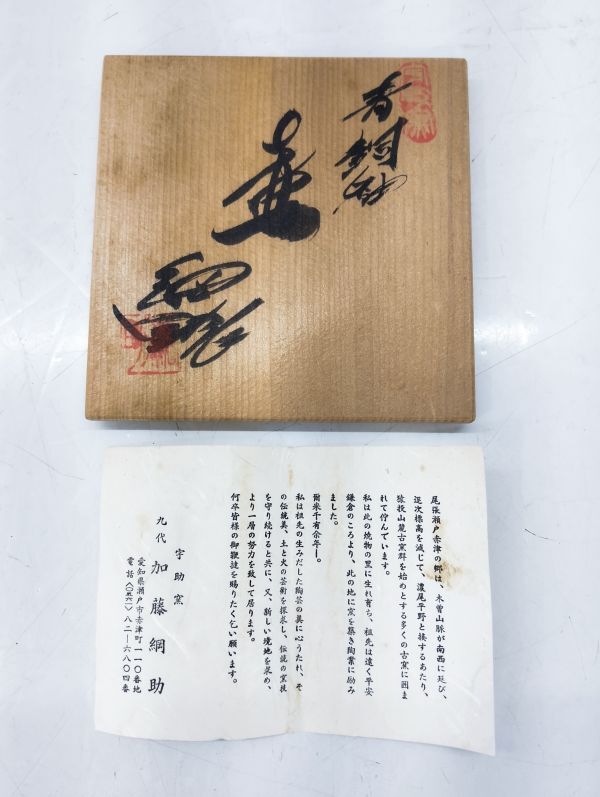 青銅砂
壷
尾張瀬戸赤津の郷は、木曽山脈が南西に延び、
逐次標高を減じて、濃尾平野と接するあたり、
猿投山麓古窯群を始めとする多くの古窯に囲ま
れて佇んでいます。
私は此の焼物の里に生れ育ち、祖先は遠く平安
鎌倉のころより、此の地に窯を築き陶業に励み
ました。
爾来千有余年―。
私は祖先の生みだした陶芸の美に心うたれ、そ
の伝統美、土と火の芸術を探求し、伝統の窯技
を守り続けると共に、又、新しい境地を求め、
より一層の努力を致して居ります。
何卒皆様の御鞭撻を賜りたく乞い願います。
宇助窯
九代 加藤綱助
愛知県瀬戸市赤津町一一〇番地
電話〈〇五六一〉八二―六八〇四番